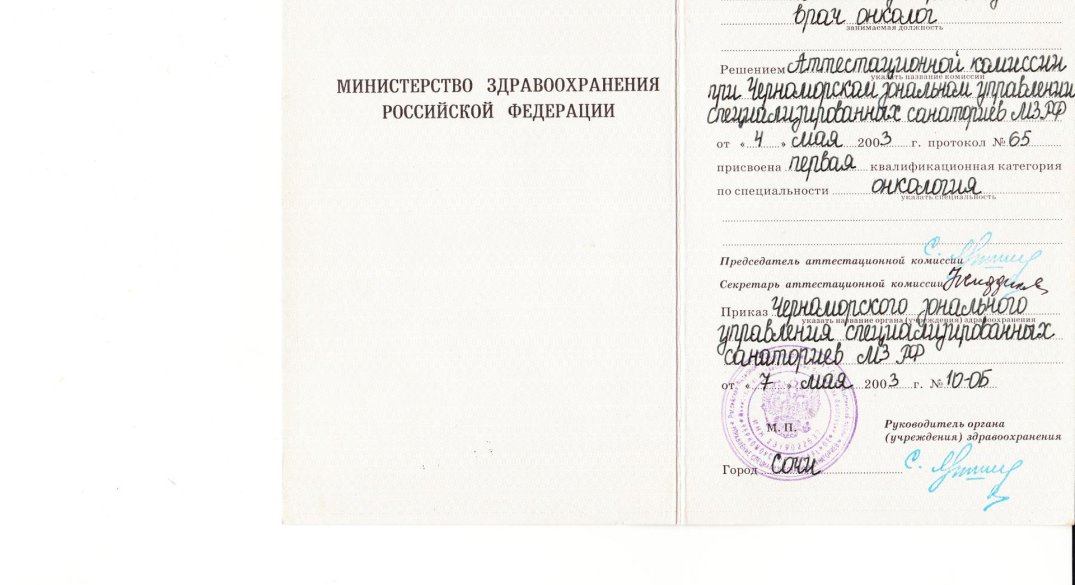 МИНИСТЕРСТВО ЗДРАВООХРАНЕНИЯ
РОССИЙСКОЙ ФЕДЕРАЦИИ
врач онколог
занимаемая должность
Решением Аттестационной комиссии
указать название комиссии
при Черноморском зональном управлении
специализированных санаториев МЗ РФ
от « 4 » мая 2003 г. протокол № 65
присвоена первая квалификационная категория
по специальности онкология
указать специальность
Председатель аттестационной комиссии
Секретарь аттестационной комиссии
Приказ Черноморского зонального
указать название органа (учреждения) здравоохранения
управления специализированных
санаториев МЗ РФ
от « 7 » мая 2003 г. № 10-ОБ
Руководитель органа
М. П.
(учреждения) здравоохранения
Город Сочи